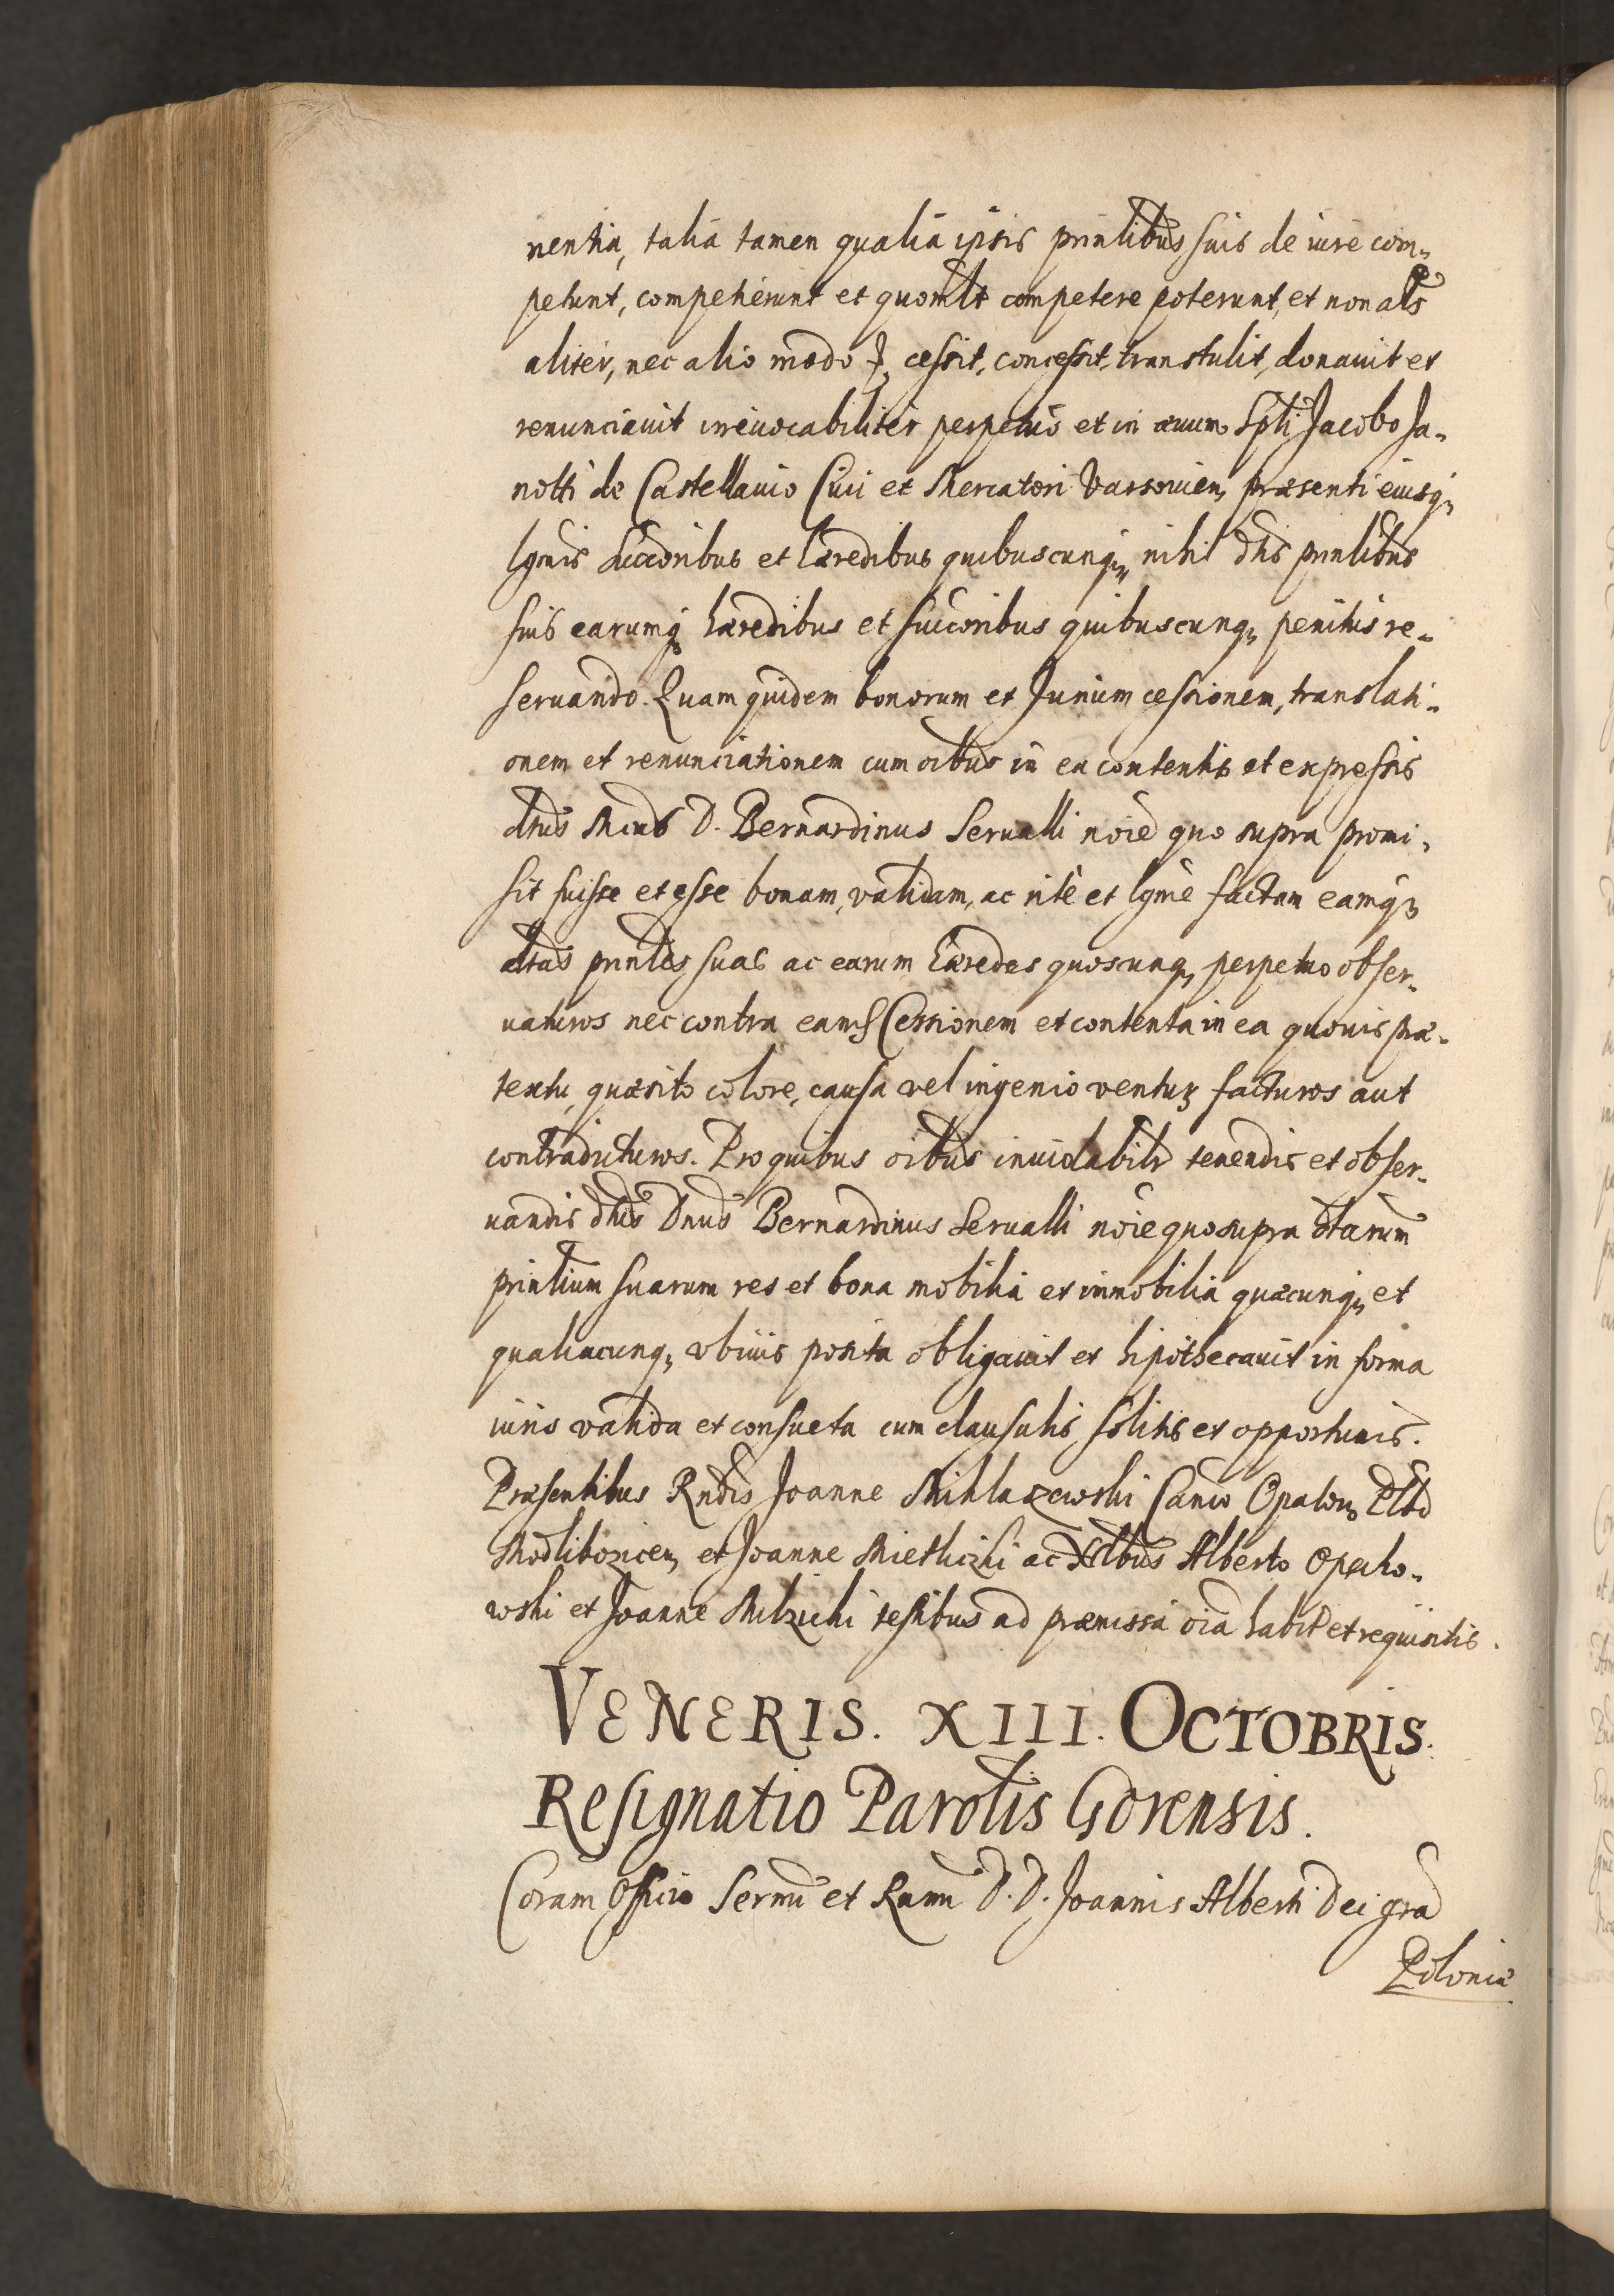 nentia, talia tamen qualia ipsis prinlibus suis de iure com-
petunt, competierunt et quomlt competere poterunt, et non als
aliter, nec alio modo cessit, concessit, transtulit, donauit et
renunciauit irreuocabiliter perpetuo et in æuum Spli Jacobo Ja-
notti de Castellauio Ciui et Mercatori Varsouien, præsenti eiusq,
lgmis succoribus et hæredibus quibuscunq, nihil dtis prinlibus
suis earumq hæredibus et succoribus quibuscunq, penitus re-
seruando. Quam quidem bonorum et Jurium cessionem, translati-
onem et renunciationem cum oibus in ea contentis et expressis
dtus D. Bernardinus Serualli noie quo supra promi-
sit fuisse et esse bonam, validam, ac rite et lgme factam eamq3
dtas prinles suas ac earum hæredes quoscunq, perpetuo obser-
uaturos nec contra eam Cessionem et contenta in ea quouis præ-
textu, quæsito colore, causa vel ingenio ventur facturos aut
contradicturos. Pro quibus oibus inuiolabilr tenendis et obser-
uandis dtus Dnus Bernardinus Serualli noie quo supra dtarum
prinlium suarum res et bona mobilia et immobilia quæcunq, et
qualiacunq, vbiuis posita obligauit et hipothecauit in forma
iuris valida et consueta cum clausulis solitis et opportunis.
Præsentibus Rndis Joanne Miklaszewski Canco Opatou, Plbo
Modlibozicen, et Joanne Miethizki ac Nlbus Alberto Opacho-
wski et Joanne Milzicki testibus ad præmissa oia habit et requisitis.
VENERIS. XIII. OCTOBRIS.
Resignatio Parolis Gorensis.
Coram Officio Sermi et Rmi D. D. Joannis Alberti Dei gra
Poloniæ